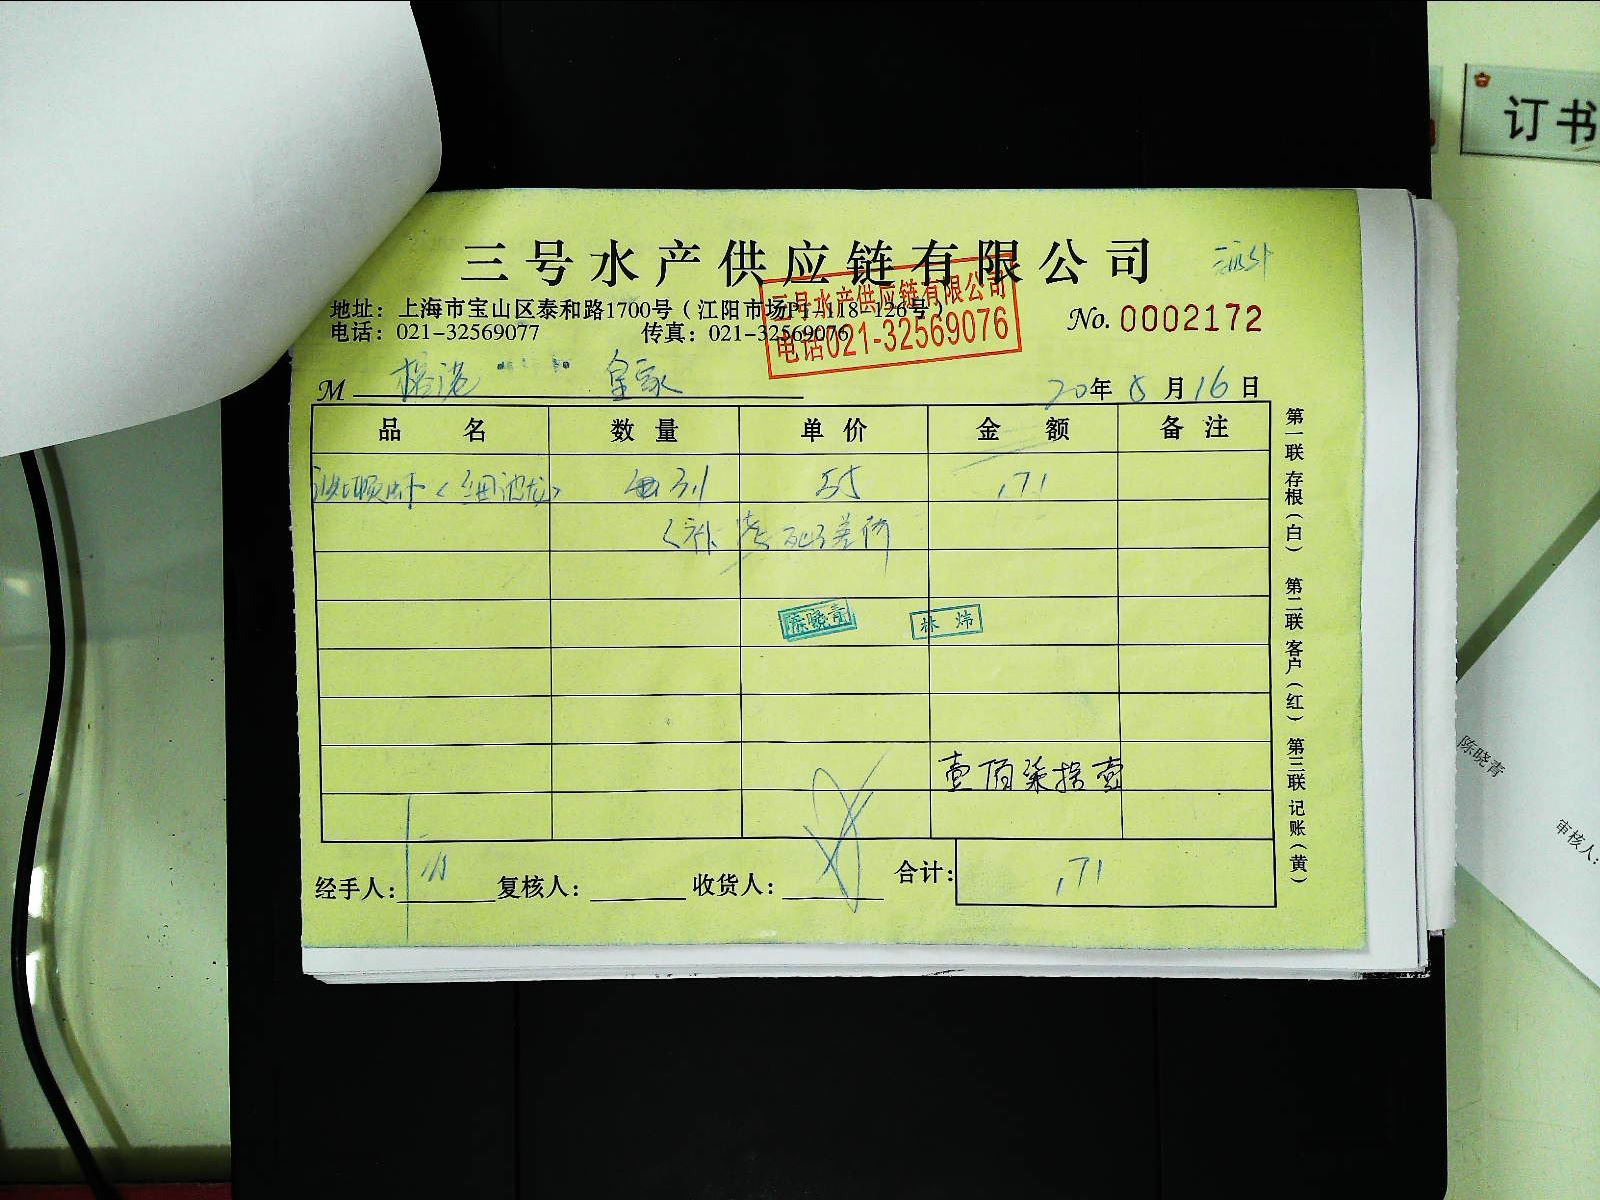 订书
三号水产供应链有限公司
地址：上海市宝山区泰和路1700号（江阳市场P1-118-126号）
电话：021-32569077 传真：021-32569076
三号水产供应链有限公司
电话021-32569076
No. 0002172
M 皇家
20年8月16日
品名 数量 单价 金额 备注
3.1 55 171
补 差价
陈晓青 林炜
壹佰柒拾壹
经手人： 复核人： 收货人： 合计： 171
第一联 存根（白） 第二联 客户（红） 第三联 记账（黄）
陈晓青
审核人：